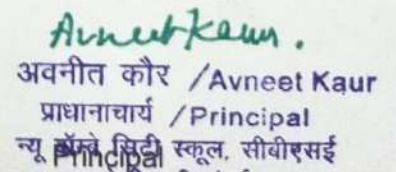 Avneet Kaur.
अवनीत कौर /Avneet Kaur
प्राधानाचार्य /Principal
न्यू बॉम्बे सिटी स्कूल, सीबीएसई
Principal